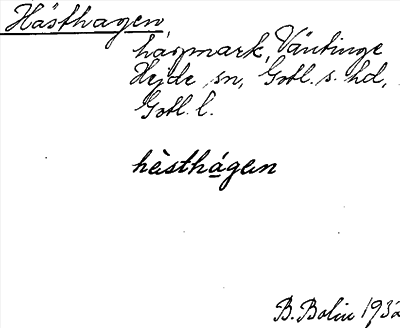 Hästhagen
hagmark, Väntinge
Hejde sn, Gotl. s. hd,
Gotl. l.
hästhágen
B. Bolin 1932